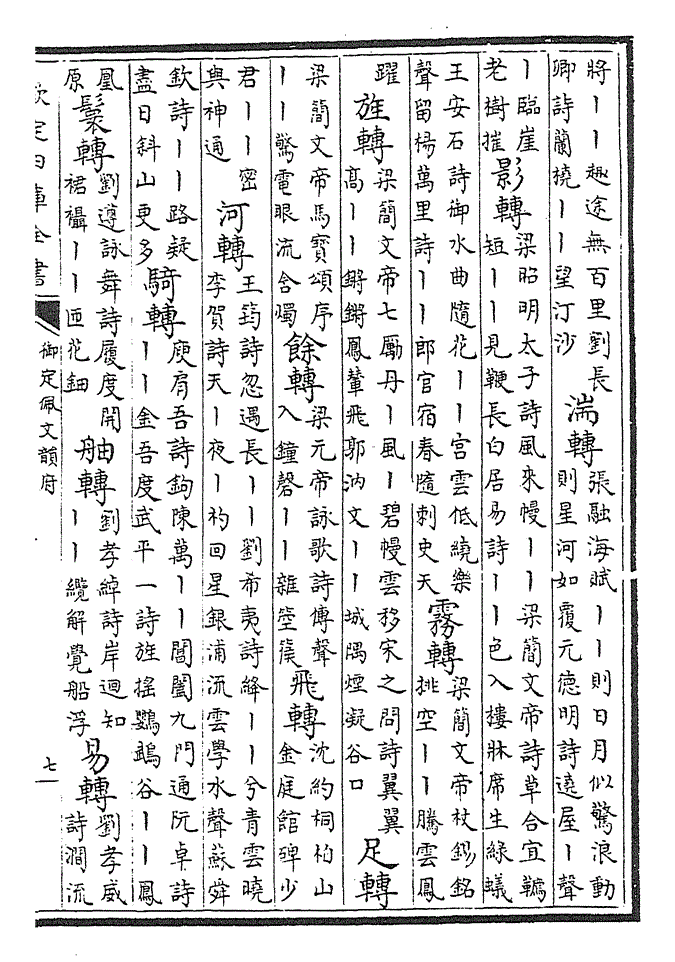 將丨丨趣途無百里劉長卿詩蘭橈丨丨望汀沙 湍轉 張融海賦丨丨則日月似驚浪動則星河如覆元德明詩遶屋丨聲
丨臨崖老樹摧 影轉 梁昭明太子詩風來幔丨丨梁簡文帝詩草合宜韉短丨丨見鞭長白居易詩丨丨色入樓牀席生綠蟻
王安石詩御水曲隨花丨丨宫雲低繞樂聲留楊萬里詩丨丨郎官宿春隨刺史天 霧轉 梁簡文帝杖錫銘排空丨丨騰雲鳳
躍 旌轉 梁簡文帝七勵丹丨風丨碧幔雲移宋之問詩翼翼高丨丨鏘鏘鳳輦飛郭汭文丨丨城隅煙凝谷口 足轉
梁簡文帝馬寳頌序丨丨驚電眼流含燭 餘轉 梁元帝詠歌詩傳聲入鐘磬丨丨雜箜篌 飛轉 沈約桐柏山金庭館碑少
君丨丨密與神通 河轉 王筠詩忽遇長丨丨劉希夷詩絳丨丨兮青雲曉李賀詩天丨夜丨杓回星銀浦流雲學水聲蘇舜
欽詩丨丨路疑盡日斜山更多 騎轉 庾肩吾詩鉤陳萬丨丨閶闔九門通阮卓詩丨丨金吾度武平一詩旌摇鸚鵡谷丨丨鳳
凰原 鬟轉 劉遵詠舞詩履度開裙襵丨丨匝花鈿 舳轉 劉孝綽詩岸迴知丨丨纜解覺船浮 易轉 劉孝威詩澗流
欽定四庫全書
御定佩文韻府
七